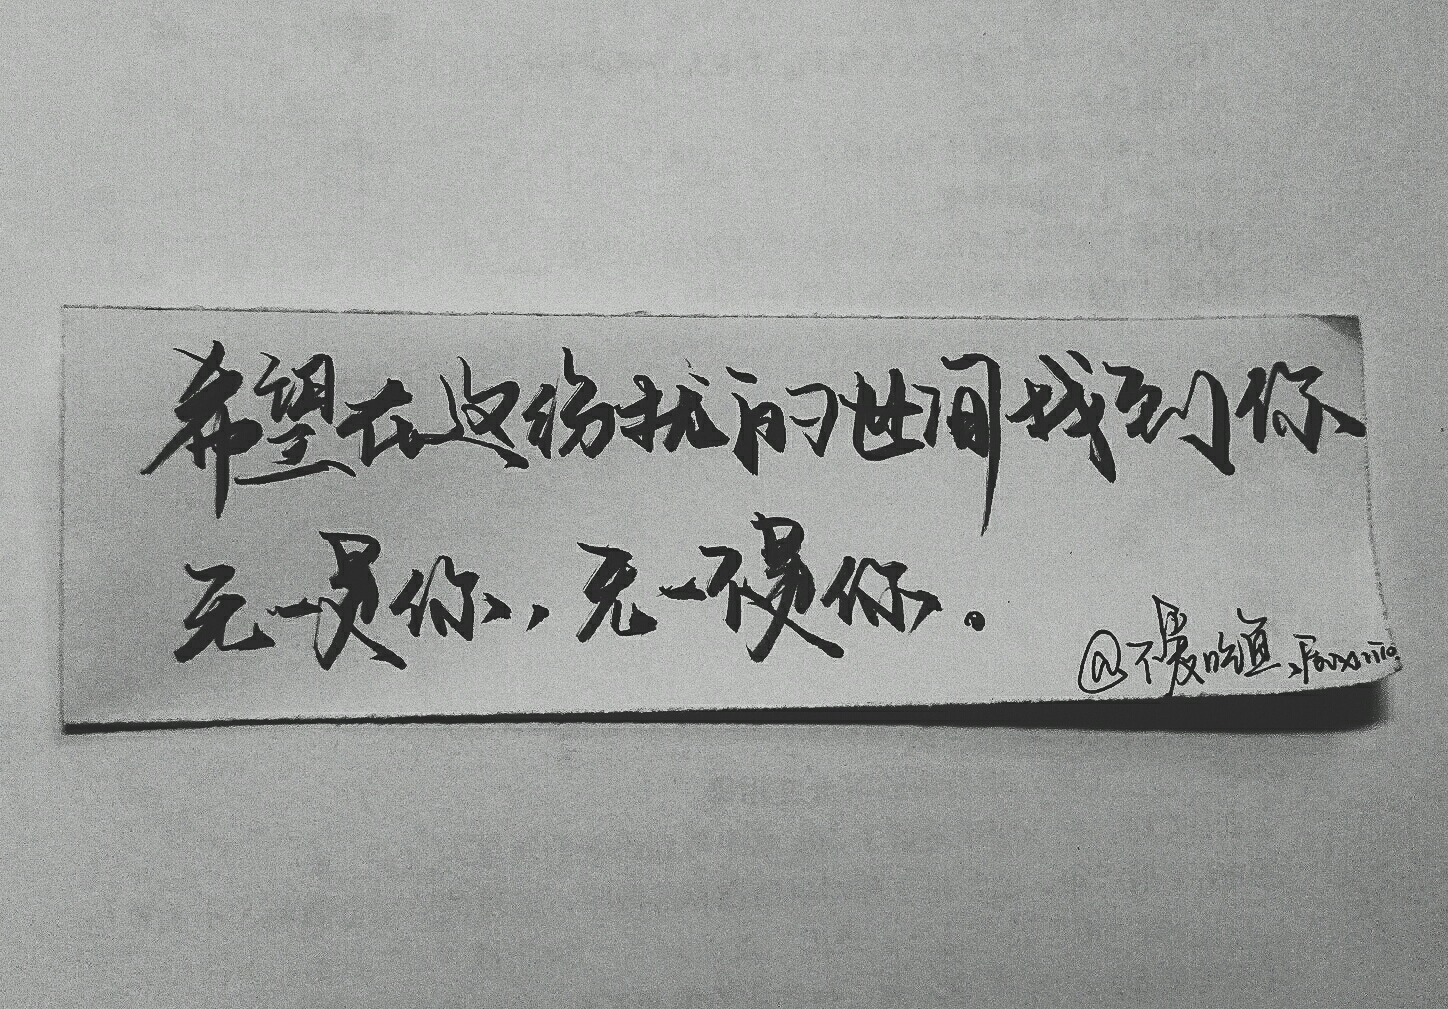 希望在这纷扰的世间找到你
无一是你，无一不是你。